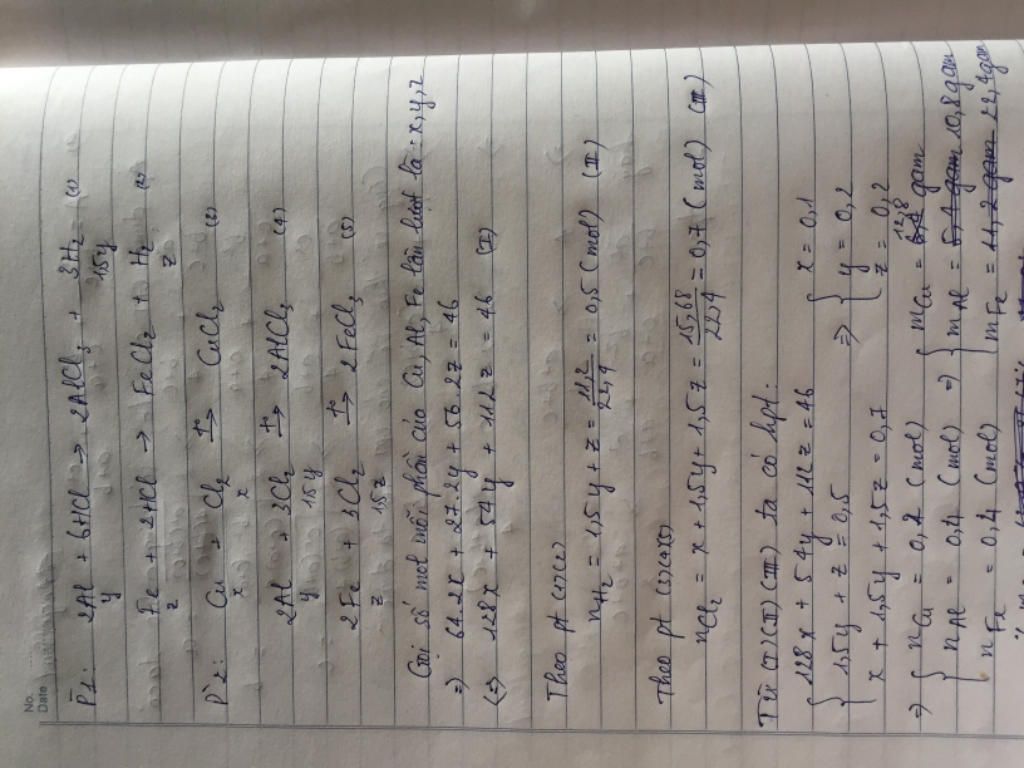 No.
Date
P1: 2Al + 6HCl → 2AlCl3 + 3H2 (1)
y 1,5y
Fe + 2HCl → FeCl2 + H2 (2)
z z
P2: Cu + Cl2 t°→ CuCl2
x x
2Al + 3Cl2 t°→ 2AlCl3 (4)
y 1,5y
2Fe + 3Cl2 t°→ 2FeCl3 (5)
z 1,5z
Gọi số mol mỗi phần của Cu, Al, Fe lần lượt là: x, y, z
=) 64.2x + 27.2y + 56.2z = 46
(=) 128x + 54y + 112z = 46 (I)
Theo pt (1)(2)
nH2 = 1,5y + z = 11,2/22,4 = 0,5 (mol) (II)
Theo pt
nCl2 = x + 1,5y + 1,5z = 15,68/22,4 = 0,7 (mol) (III)
Từ (I)(II)(III) ta có hpt:
{ 128x + 54y + 112z = 46
1,5y + z = 0,5
x + 1,5y + 1,5z = 0,7
=> { x = 0,1
y = 0,2
z = 0,2
=> { nCu = 0,2 (mol)
nAl = 0,4 (mol)
nFe = 0,4 (mol)
=> { mCu = 12,8 gam
mAl = 5,4 gam 10,8 gam
mFe = 11,2 gam 22,4 gam